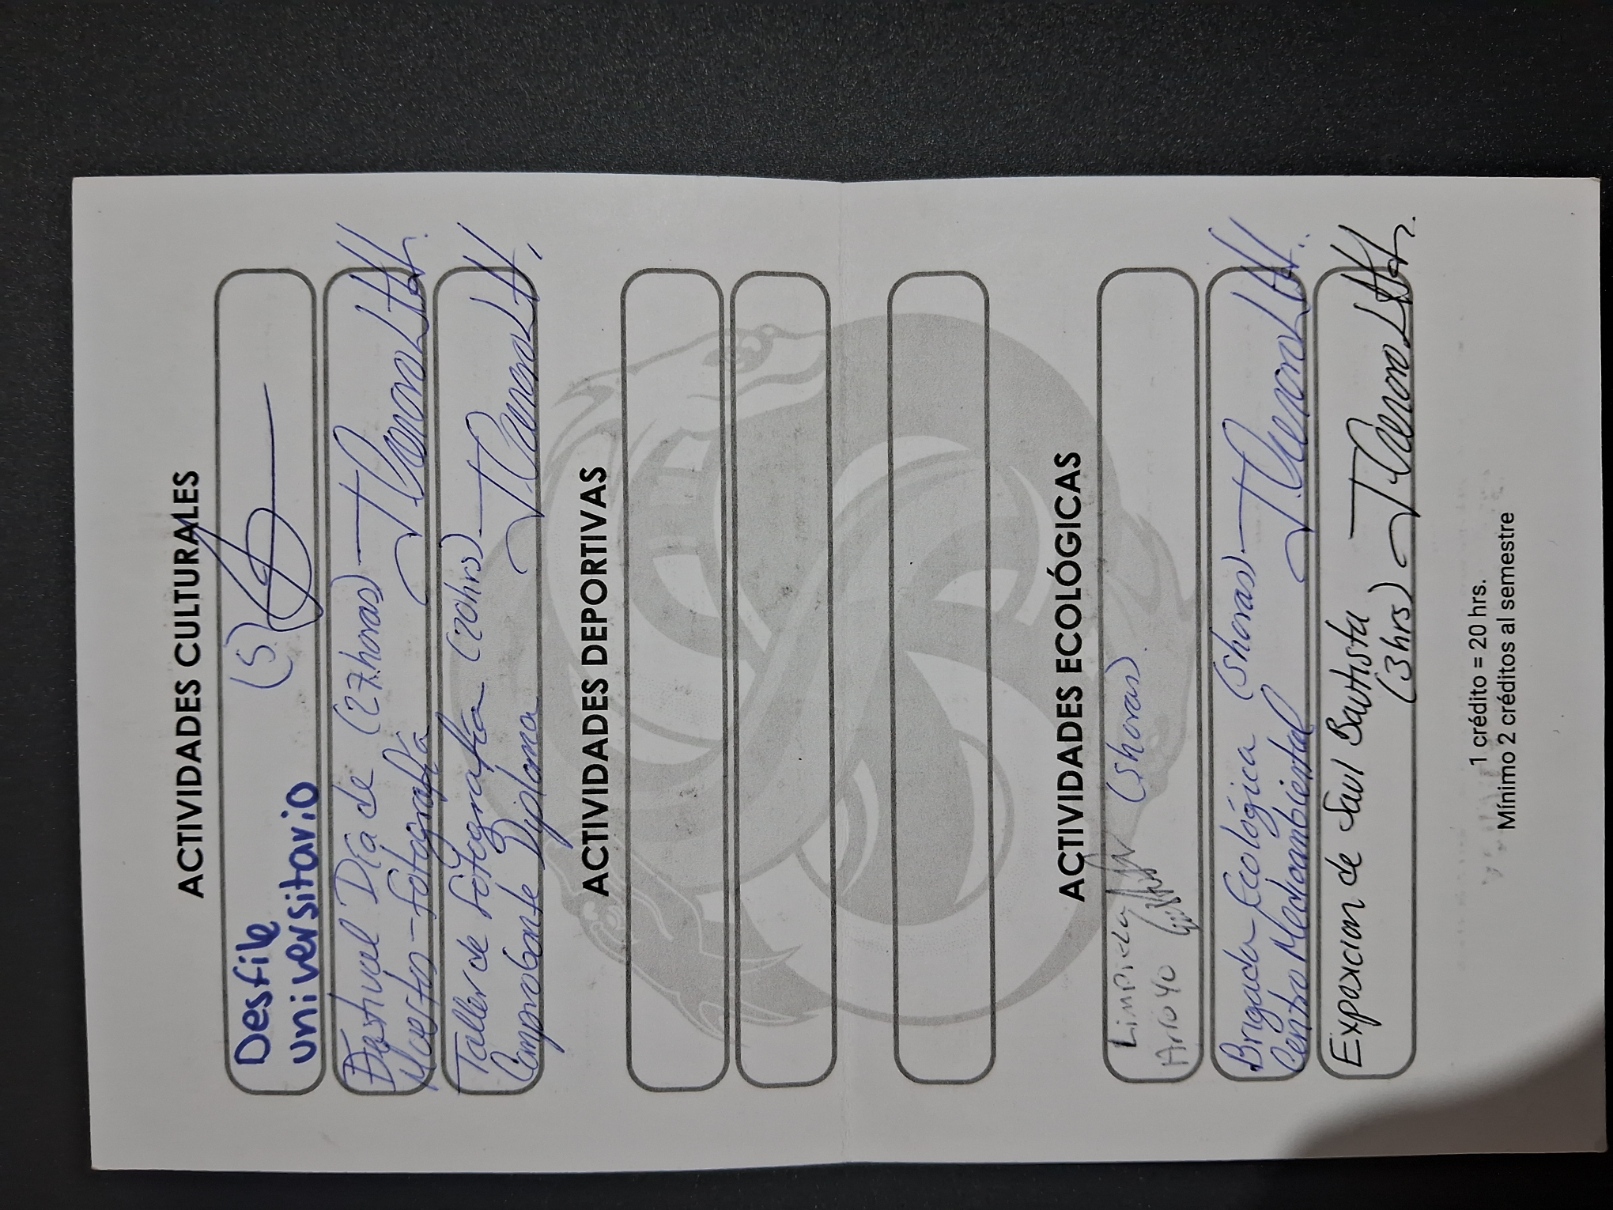 ACTIVIDADES CULTURALES
Desfile (5)
universitario
Festival Día de (27 horas)
Muestra - fotografía
Taller de fotografía (20 hrs)
Comprobante Diploma
ACTIVIDADES DEPORTIVAS
ACTIVIDADES ECOLÓGICAS
Limpieda
Arroyo (5 horas)
Brigada Ecológica (5 horas)
Centro Medioambiental
Exposicion de Saul Bautista
(3 hrs)
1 crédito = 20 hrs.
Mínimo 2 créditos al semestre